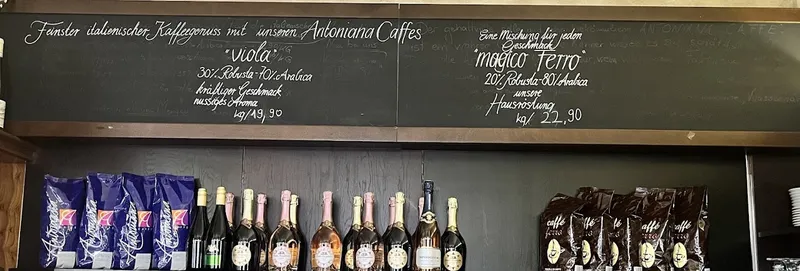 Feinster italienischer Kaffeegenuss mit unseren Antoniana Caffes
"viola"
30% Robusta-70% Arabica
kräftiger Geschmack
nussiges Aroma
kg/19,90
Eine Mischung für jeden
Geschmack
"magico ferro"
20% Robusta-80% Arabica
unsere
Hausröstung
kg/ 22,90
caffé
caffé
caffé
caffé